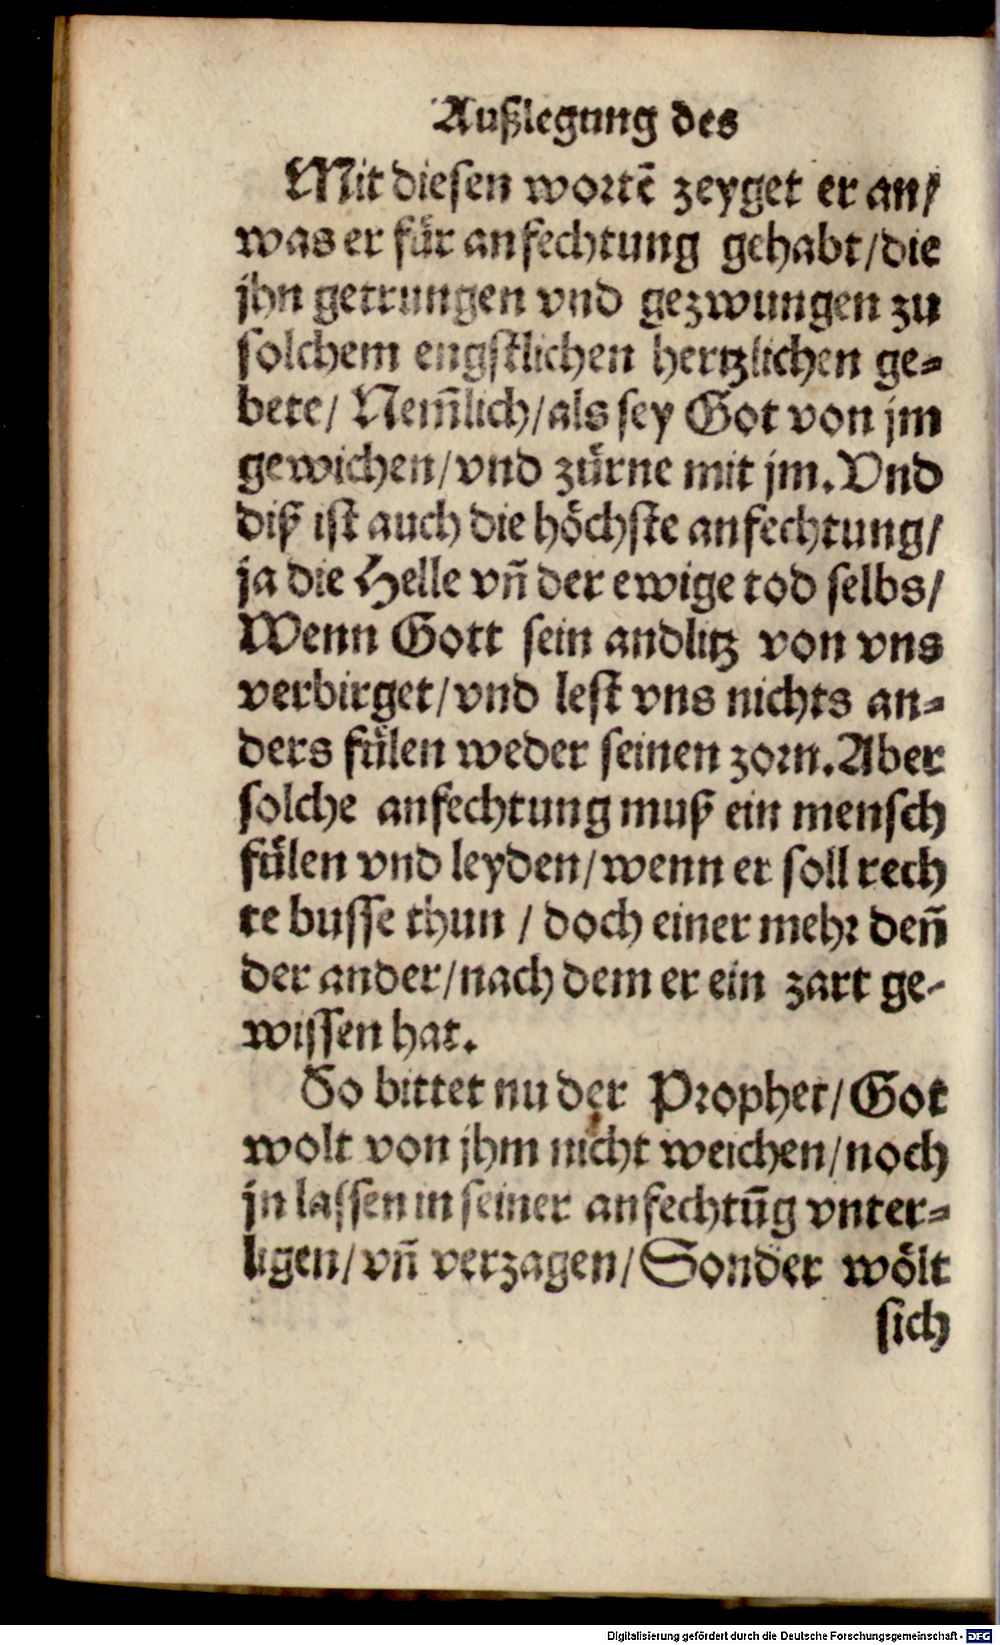 Außlegung des
Mit diesen wortē zeyget er an/
was er für anfechtung gehabt/die
jhn getrungen vnd gezwungen zu
solchem engstlichen hertzlichen ge⸗
bete/ Nem̃lich/als sey Got von jm
gewichen/vnd zürne mit jm. Vnd
diß ist auch die höchste anfechtung/
ja die Helle vñ der ewige tod selbs/
Wenn Gott sein andlitz von vns
verbirget/vnd lest vns nichts an⸗
ders fülen weder seinen zorn. Aber
solche anfechtung muß ein mensch
fülen vnd leyden/wenn er soll rech
te busse thun / doch einer mehr deñ
der ander/nach dem er ein zart ge-
wissen hat.
So bittet nu der Prophet/Got
wolt von jhm nicht weichen/noch
jn lassen in seiner anfechtūg vnter⸗
ligen/vñ verzagen/Sonder wölt
sich
Digitalisierung gefördert durch die Deutsche Forschungsgemeinschaft - DFG